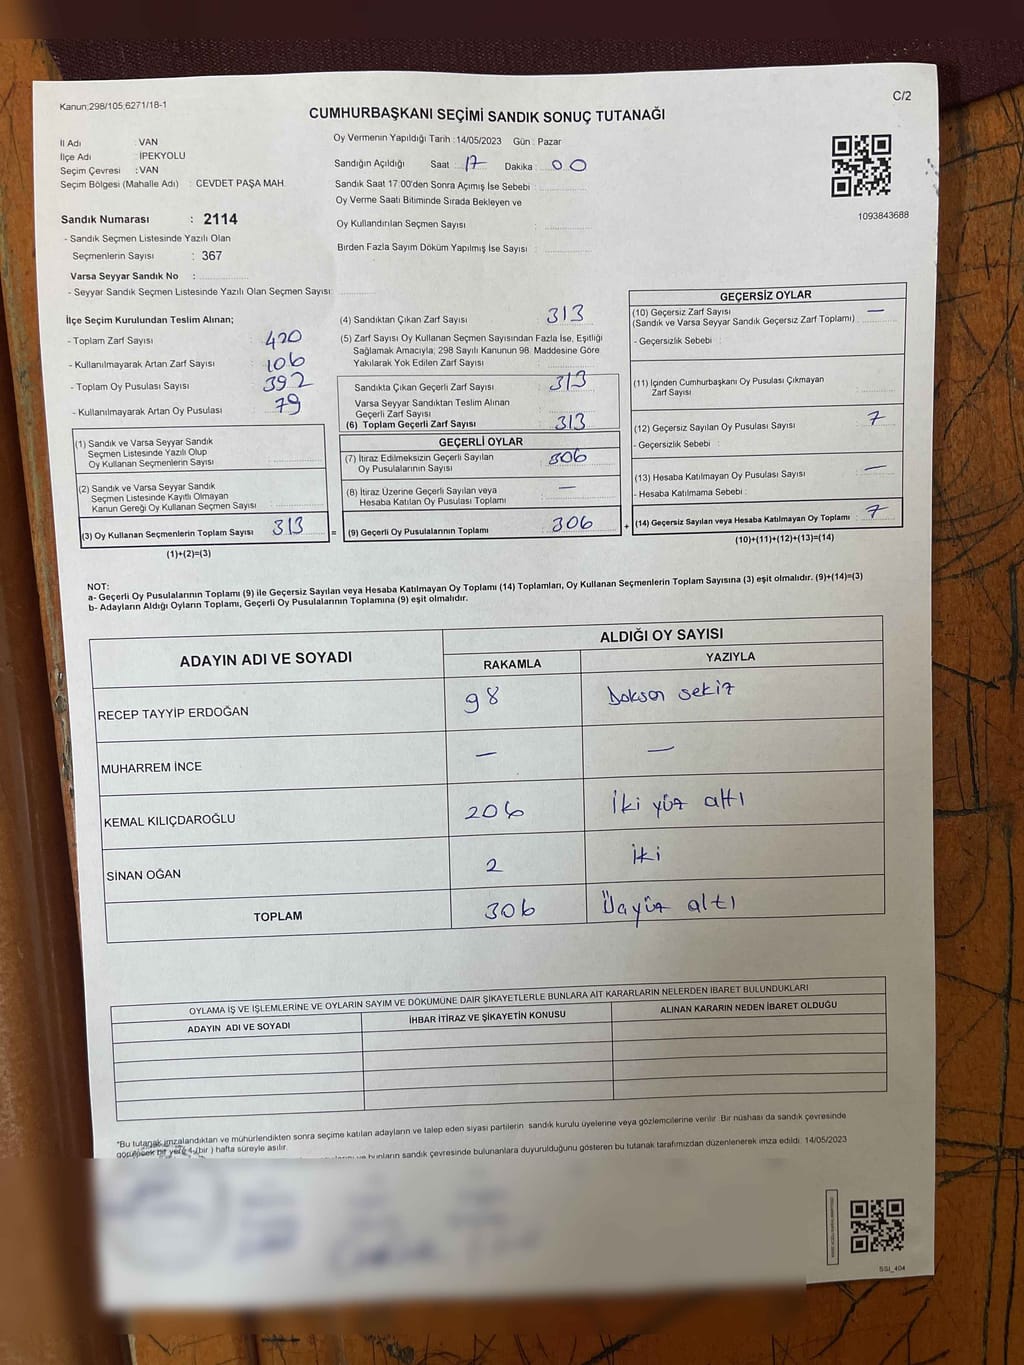 Kanun;298/105;6271/18-1
C/2
CUMHURBAŞKANI SEÇİMİ SANDIK SONUÇ TUTANAĞI
İl Adı : VAN
İlçe Adı : İPEKYOLU
Seçim Çevresi : VAN
Seçim Bölgesi (Mahalle Adı) : CEVDET PAŞA MAH.
Oy Vermenin Yapıldığı Tarih :14/05/2023 Gün : Pazar
Sandığın Açıldığı Saat : 17 Dakika : 00
Sandık Saat 17:00'den Sonra Açımış İse Sebebi :
Oy Verme Saati Bitiminde Sırada Bekleyen ve
Oy Kullandırılan Seçmen Sayısı :
Birden Fazla Sayım Döküm Yapılmış İse Sayısı :
1093843688
Sandık Numarası : 2114
- Sandık Seçmen Listesinde Yazılı Olan
Seçmenlerin Sayısı : 367
Varsa Seyyar Sandık No :
- Seyyar Sandık Seçmen Listesinde Yazılı Olan Seçmen Sayısı:
İlçe Seçim Kurulundan Teslim Alınan;
- Toplam Zarf Sayısı : 420
- Kullanılmayarak Artan Zarf Sayısı : 106
- Toplam Oy Pusulası Sayısı : 392
- Kullanılmayarak Artan Oy Pusulası : 79
(1) Sandık ve Varsa Seyyar Sandık
Seçmen Listesinde Yazılı Olup
Oy Kullanan Seçmenlerin Sayısı :
(2) Sandık ve Varsa Seyyar Sandık
Seçmen Listesinde Kayıtlı Olmayan
Kanun Gereği Oy Kullanan Seçmen Sayısı :
(3) Oy Kullanan Seçmenlerin Toplam Sayısı : 313 =
(1)+(2)=(3)
(4) Sandıktan Çıkan Zarf Sayısı : 313
(5) Zarf Sayısı Oy Kullanan Seçmen Sayısından Fazla İse, Eşitliği
Sağlamak Amacıyla; 298 Sayılı Kanunun 98. Maddesine Göre
Yakılarak Yok Edilen Zarf Sayısı :
Sandıkta Çıkan Geçerli Zarf Sayısı : 313
Varsa Seyyar Sandıktan Teslim Alınan
Geçerli Zarf Sayısı :
(6) Toplam Geçerli Zarf Sayısı : 313
GEÇERLİ OYLAR
(7) İtiraz Edilmeksizin Geçerli Sayılan
Oy Pusulalarının Sayısı : 306
(8) İtiraz Üzerine Geçerli Sayılan veya
Hesaba Katılan Oy Pusulası Toplamı : —
(9) Geçerli Oy Pusulalarının Toplamı : 306 +
GEÇERSİZ OYLAR
(10) Geçersiz Zarf Sayısı : —
(Sandık ve Varsa Seyyar Sandık Geçersiz Zarf Toplamı)
- Geçersizlik Sebebi :
(11) İçinden Cumhurbaşkanı Oy Pusulası Çıkmayan
Zarf Sayısı :
(12) Geçersiz Sayılan Oy Pusulası Sayısı : 7
- Geçersizlik Sebebi :
(13) Hesaba Katılmayan Oy Pusulası Sayısı : —
- Hesaba Katılmama Sebebi :
(14) Geçersiz Sayılan veya Hesaba Katılmayan Oy Toplamı : 7
(10)+(11)+(12)+(13)=(14)
NOT:
a- Geçerli Oy Pusulalarının Toplamı (9) ile Geçersiz Sayılan veya Hesaba Katılmayan Oy Toplamı (14) Toplamları, Oy Kullanan Seçmenlerin Toplam Sayısına (3) eşit olmalıdır. (9)+(14)=(3)
b- Adayların Aldığı Oyların Toplamı, Geçerli Oy Pusulalarının Toplamına (9) eşit olmalıdır.
ADAYIN ADI VE SOYADI ALDIĞI OY SAYISI
RAKAMLA YAZIYLA
RECEP TAYYİP ERDOĞAN 98 Doksan sekiz
MUHARREM İNCE — —
KEMAL KILIÇDAROĞLU 206 İki yüz altı
SİNAN OĞAN 2 İki
TOPLAM 306 Üçyüz altı
OYLAMA İŞ VE İŞLEMLERİNE VE OYLARIN SAYIM VE DÖKÜMÜNE DAİR ŞİKAYETLERLE BUNLARA AİT KARARLARIN NELERDEN İBARET BULUNDUKLARI
ADAYIN ADI VE SOYADI İHBAR İTİRAZ VE ŞİKAYETİN KONUSU ALINAN KARARIN NEDEN İBARET OLDUĞU
*Bu tutanak imzalandıktan ve mühürlendikten sonra seçime katılan adayların ve talep eden siyasi partilerin sandık kurulu üyelerine veya gözlemcilerine verilir. Bir nüshası da sandık çevresinde
görülecek bir yere 1 (bir ) hafta süreyle asılır.
ve bunların sandık çevresinde bulunanlara duyurulduğunu gösteren bu tutanak tarafımızdan düzenlenerek imza edildi. 14/05/2023
SSI_404